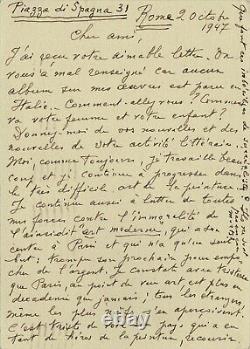 Piazza di Spagna 31 Rome 2 Octobre
1947
Cher ami,
J'ai reçu votre aimable lettre. On
vous a mal renseigné car aucun
album sur mes œuvres est paru en
Italie. Comment allez vous? Comment
va votre femme et votre enfant?
Donnez-moi de vos nouvelles et des
nouvelles de votre activité littéraire.
Moi, comme toujours, je travaille beau-
coup et je continue à progresser dans
le très difficile art de la peinture.
Je continue aussi à lutter de toutes
mes forces contre l'immoralité de
l'ainsi dit art moderne, qui a son
centre à Paris et qui n'a qu'un seul
but: tromper son prochain pour
de l'argent. Je constate avec tristesse
que Paris, au point de vue art est plus en
decadence que jamais; tous les étrangers,
même les plus s'en aperçoivent.
C'est triste de voir un pays, qui a eu
tant de de la peinture, recouvrir